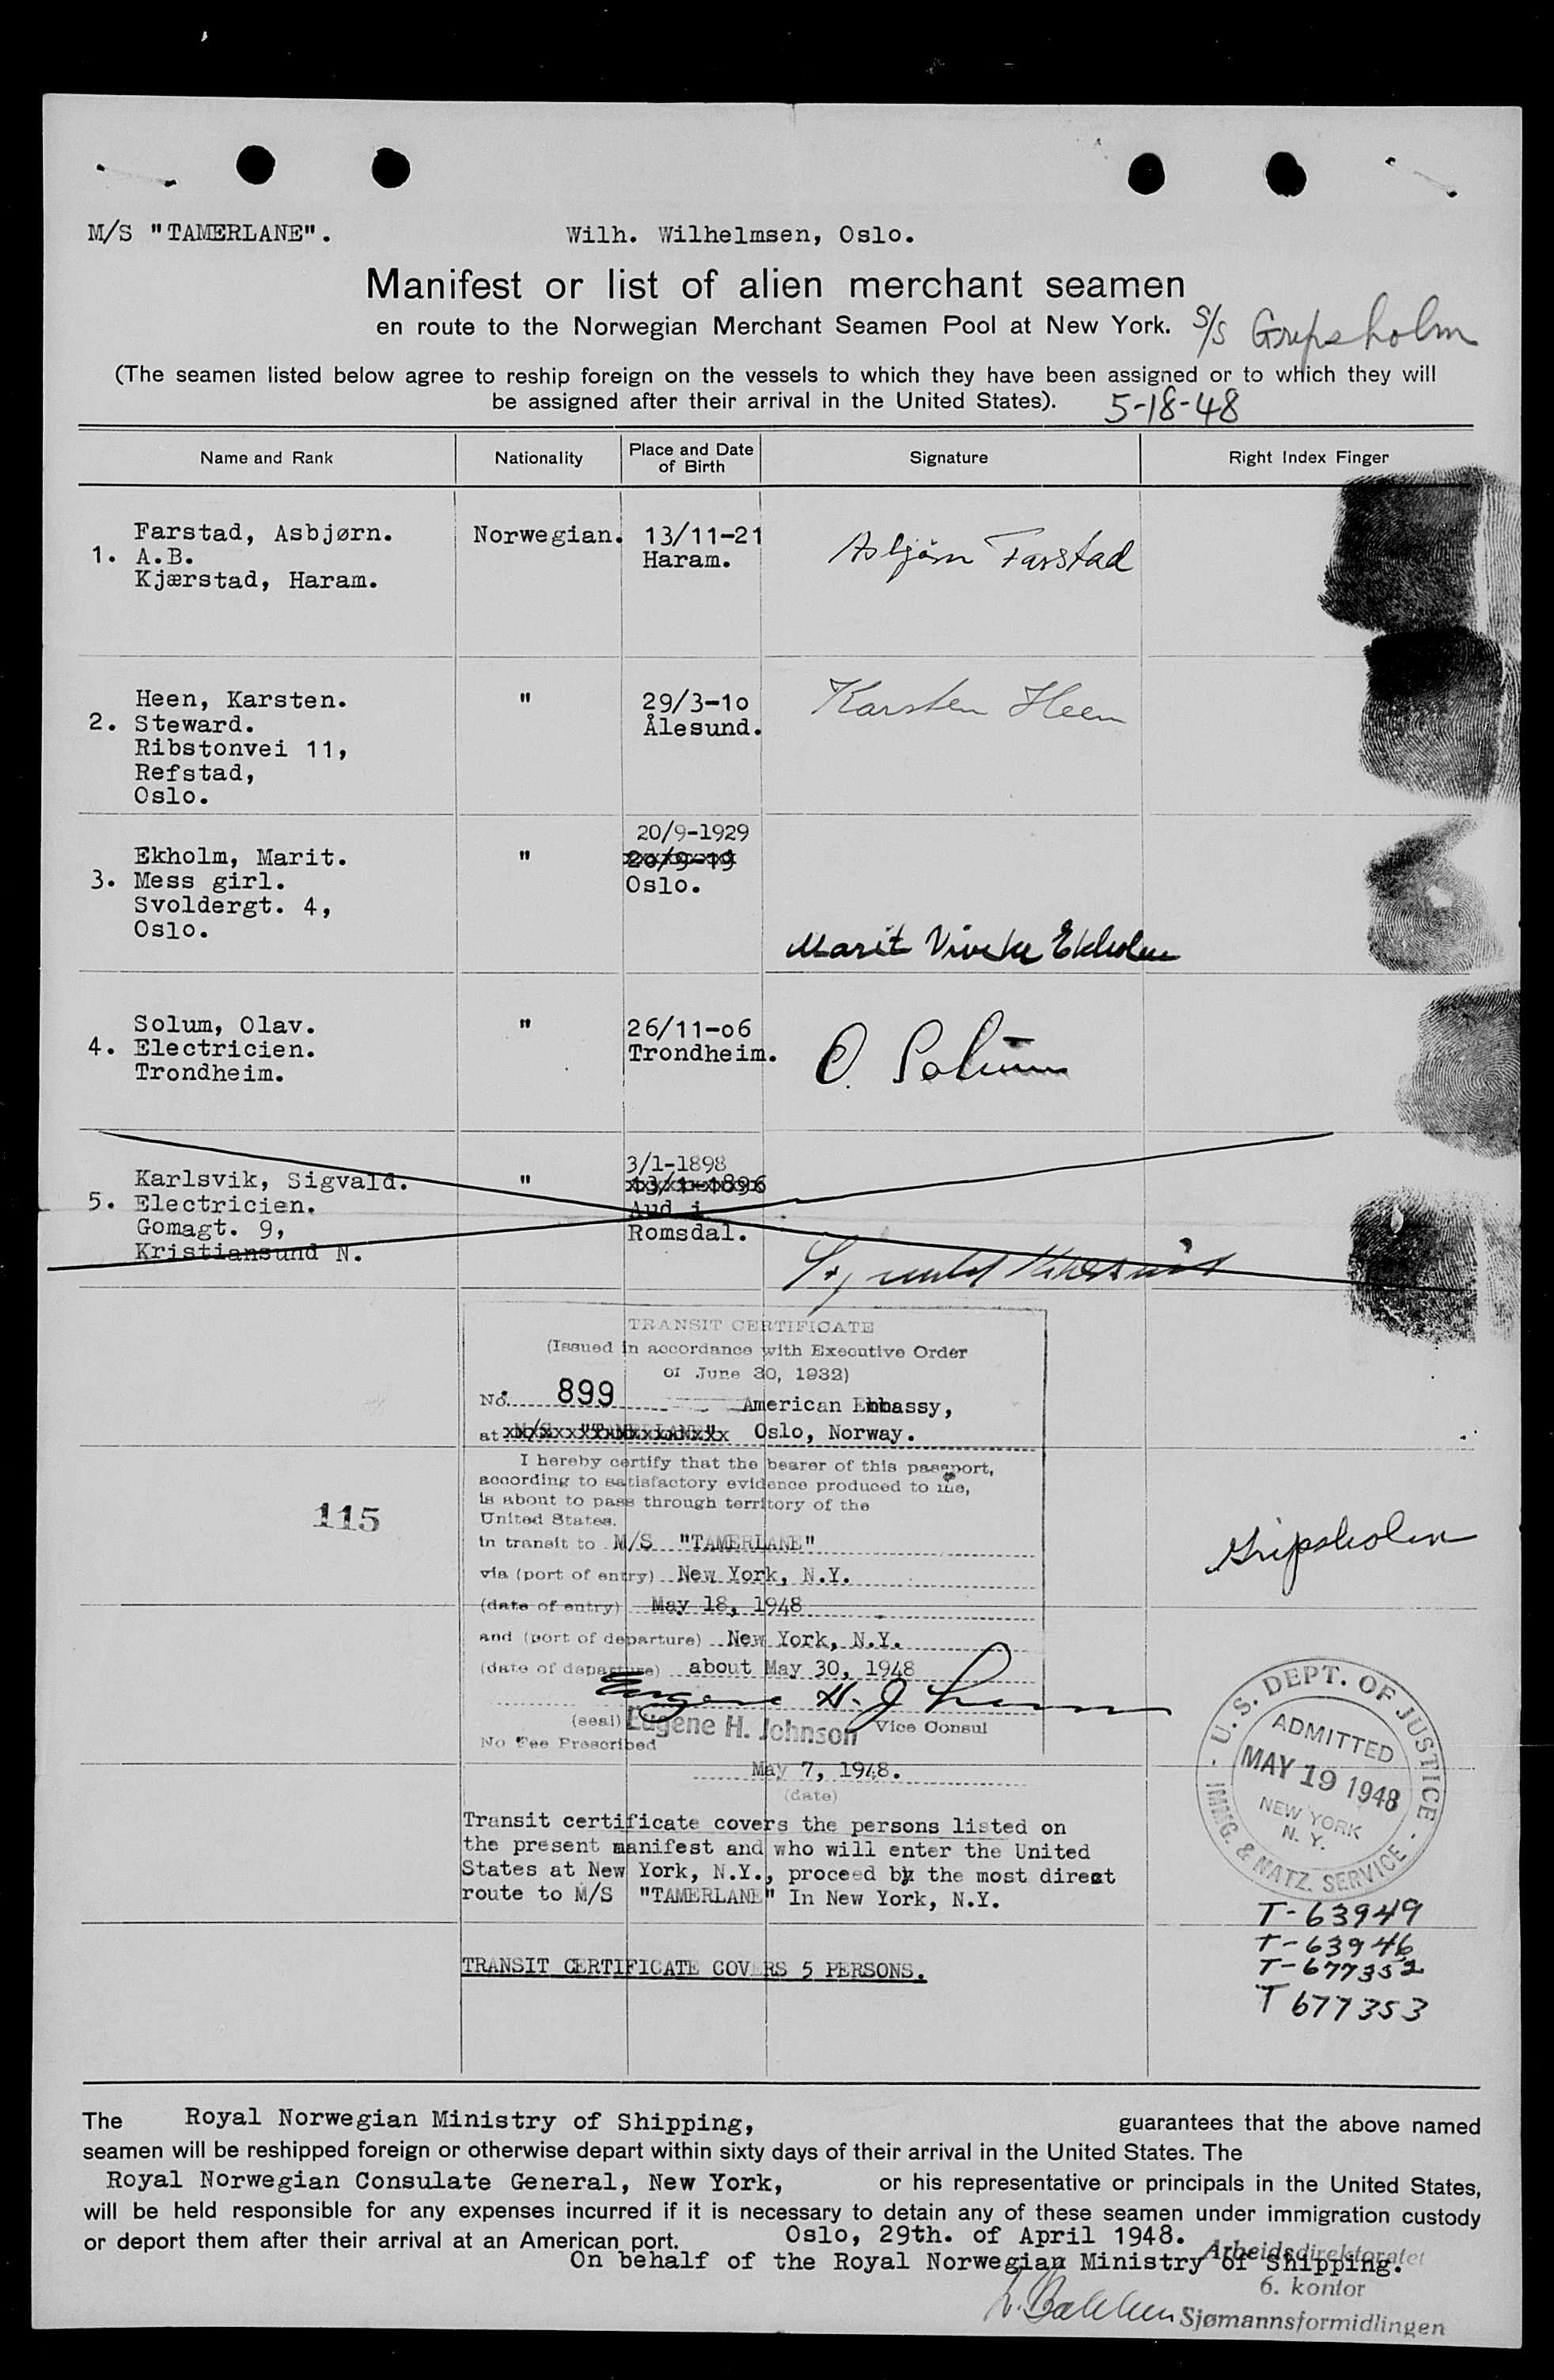 M/S "TAMERLANE". Wilh. Wilhelmsen, Oslo.
Manifest or list of alien merchant seamen
en route to the Norwegian Merchant Seamen Pool at New York. S/S Gripsholm
(The seamen listed below agree to reship foreign on the vessels to which they have been assigned or to which they will
be assigned after their arrival in the United States). 5-18-48
Name and Rank Nationality Place and Date of Birth Signature Right Index Finger
Farstad, Asbjørn. Norwegian. 13/11-21
1. A.B. Haram. Asbjörn Farstad
Kjærstad, Haram.
Heen, Karsten. " 29/3-1o Karsten Heen
2. Steward. Ålesund.
Ribstonvei 11,
Refstad,
Oslo.
20/9-1929
Ekholm, Marit. " 2o/9-19
3. Mess girl. Oslo.
Svoldergt. 4,
Oslo.
Marit Viveke Ekholm
Solum, Olav. " 26/11-o6
4. Electricien. Trondheim. O. Solum
Trondheim.
3/1-1898
Karlsvik, Sigvald. " 13/1-1896
5. Electricien. Aud i
Gomagt. 9, Romsdal.
Kristiansund N.
Sigvald Karlsvik
TRANSIT CERTIFICATE
(Issued in accordance with Executive Order
of June 30, 1932)
No. 899 American Embassy,
at M/S "TAMERLANE" Oslo, Norway.
I hereby certify that the bearer of this passport,
according to satisfactory evidence produced to me,
is about to pass through territory of the
United States.
115
in transit to M/S "TAMERLANE"
Gripsholm
via (port of entry) New York, N.Y.
(date of entry) May 18, 1948
and (port of departure) New York, N.Y.
(date of departure) about May 30, 1948
Eugene H. Johnson
(seal) Eugene H. Johnson Vice Consul
No Fee Prescribed
May 7, 1948.
(date)
U. S. DEPT. OF JUSTICE - IMMG. & NATZ. SERVICE -
ADMITTED
MAY 19 1948
NEW YORK
N. Y.
Transit certificate covers the persons listed on
the present manifest and who will enter the United
States at New York, N.Y., proceed by the most direct
route to M/S "TAMERLANE" In New York, N.Y.
T-63949
T-63946
T-677352
T 677353
TRANSIT CERTIFICATE COVERS 5 PERSONS.
The Royal Norwegian Ministry of Shipping, guarantees that the above named
seamen will be reshipped foreign or otherwise depart within sixty days of their arrival in the United States. The
Royal Norwegian Consulate General, New York, or his representative or principals in the United States,
will be held responsible for any expenses incurred if it is necessary to detain any of these seamen under immigration custody
or deport them after their arrival at an American port. Oslo, 29th. of April 1948.
On behalf of the Royal Norwegian Ministry of Shipping.
Arbeidsdirektoratet
6. kontor
Sjømannsformidlingen